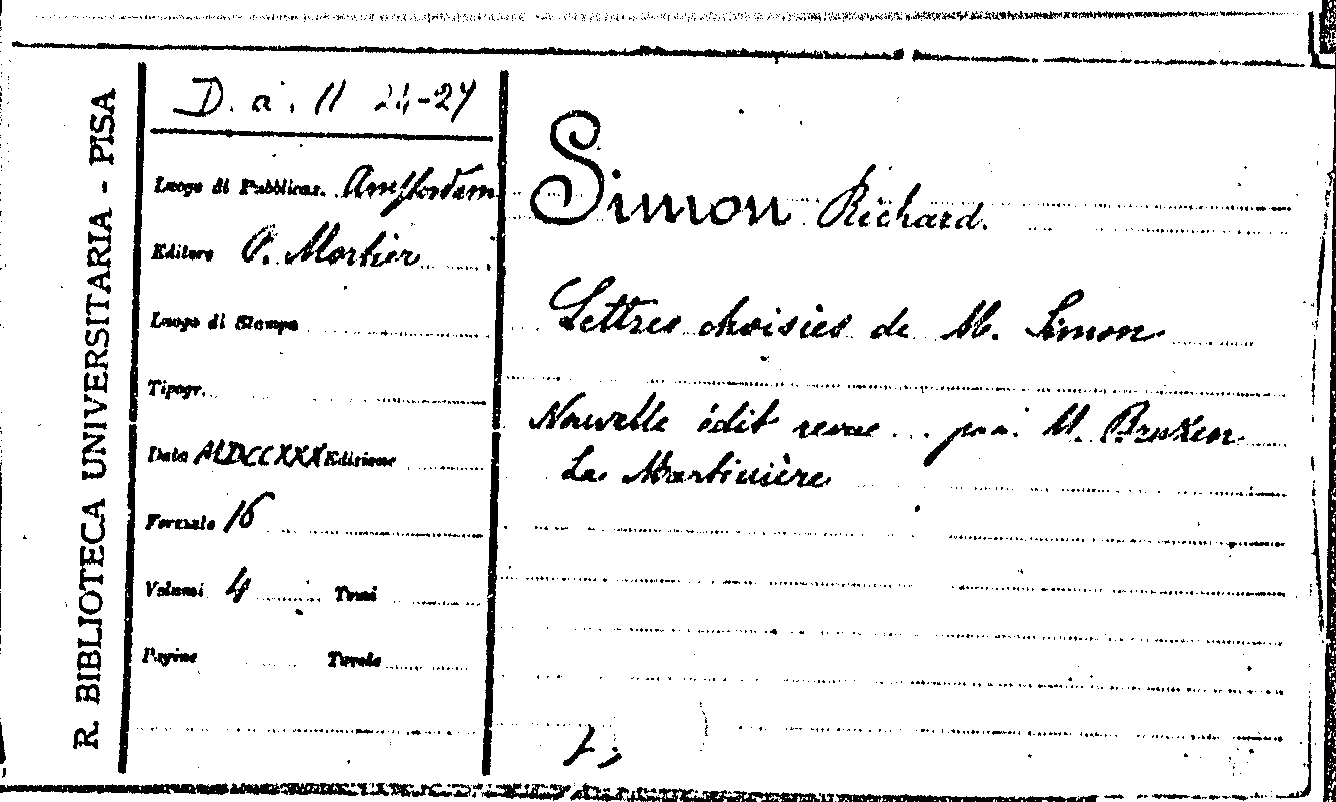 R. BIBLIOTECA UNIVERSITARIA - PISA
D. a. 11 24-27
Luogo di Pubblicaz. Amsterdam
Editore P. Mortier
Luogo di Stampa
Tipogr.
Data MDCCXXX Edizione
Formato 16
Volumi 4 Tomi
Pagine Tavole
Simon Richard.
Lettres choisies de M. Simon
Nouvelle édit revue ... par M. Bruzen
La Martinière